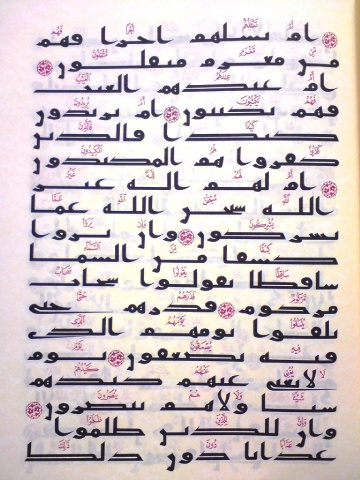 ام تسلهم اجرا فهم
من مغرم مثقلون
ام عندهم الغيب
فهم يكتبون ام يريدون
كيدا فالذين
كفروا هم المكيدون
ام لهم اله غير
الله سبحن الله عما
يشركون وان يروا
كسفا من السما
ساقطا يقولوا سحاب
مركوم فذرهم حتى
يلقوا يومهم الذي
فيه يصعقون يوم
لا يغني عنهم كيدهم
شيا ولا هم ينصرون
وان للذين ظلموا
عذابا دون ذلك